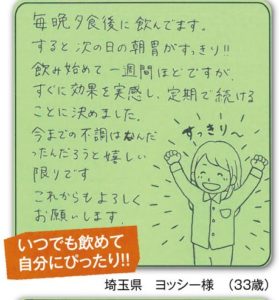 毎晩夕食後に飲んでます。
すると次の日の朝胃がすっきり!!
飲み始めて一週間ほどですが、
すぐに効果を実感し、定期で続ける
ことに決めました。
今までの不調はなんだ
ったんだろうと嬉しい
限りです
これからもよろしく
お願いします。
すっきり～
いつでも飲めて
自分にぴったり!!
埼玉県 ヨッシー様 (33歳)